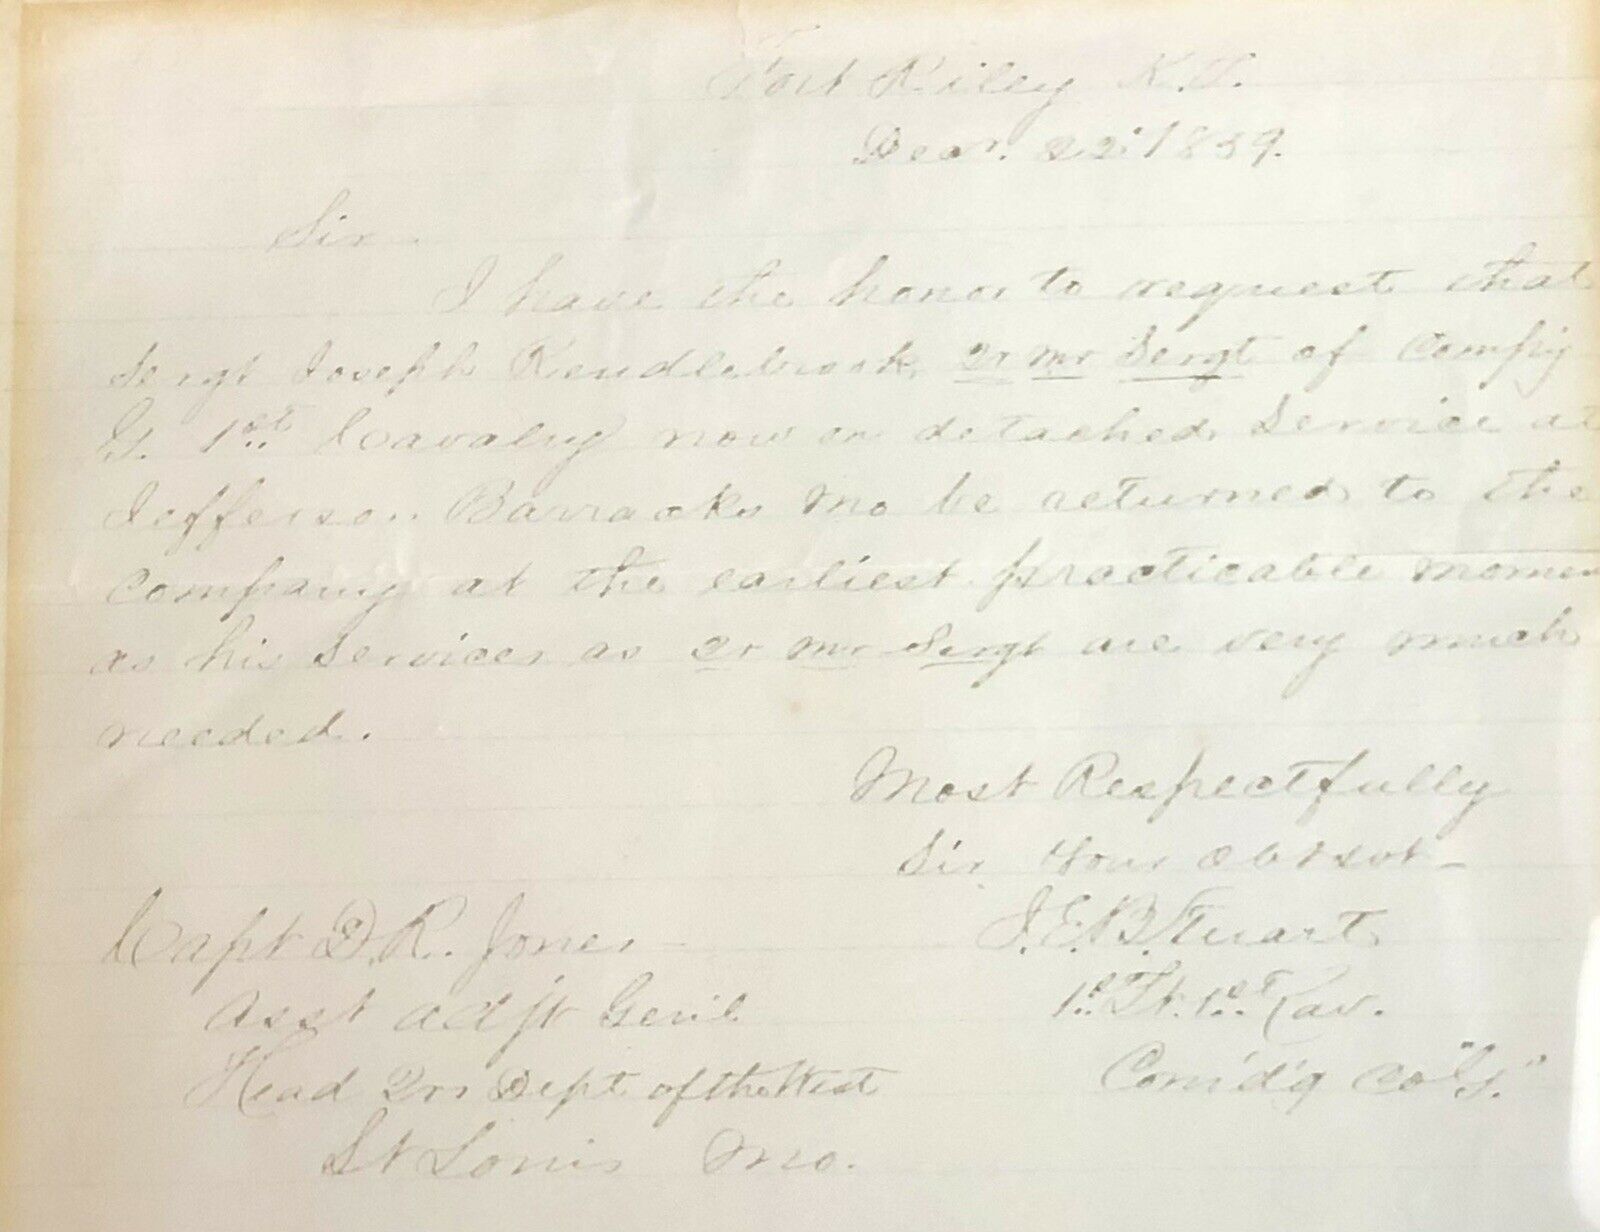 Fort Riley K.T.
Decr. 22d 1859.
Sir
I have the honor to request that
Sergt Joseph Kendlebrook Qr Mr Sergt of Compy
G. 1st Cavalry now on detached service at
Jefferson Barracks Mo be returned to the
company at the earliest practicable momen
as his services as Qr Mr Sergt are very much
needed.
Most Respectfully
Sir Your obt svt
J.E.B. Stuart
1st Lt. 1st Cav.
Com'd'g Co "G."
Capt D.R. Jones
Asst Adjt Genl
Head Qrs Dept of the West
St Louis Mo.